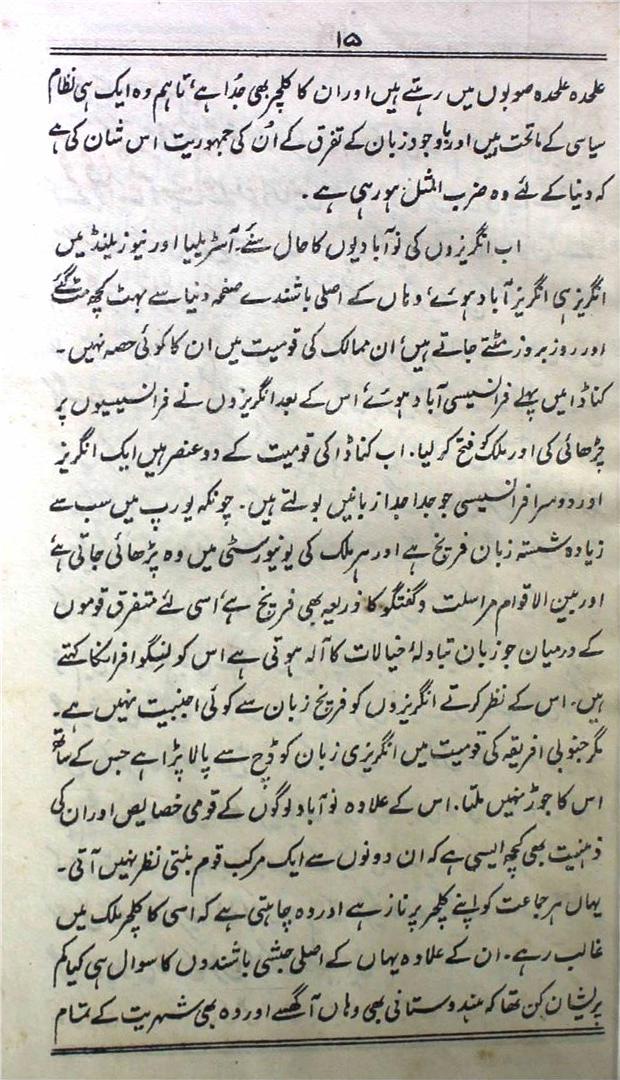 ۱۵
علٰحدہ علٰحدہ صوبوں میں رہتے ہیں اور ان کا کلچر بھی جُدا ہے، تاہم وہ ایک ہی نظام
سیاسی کے ماتحت ہیں اور باوجود زبان کے تفرق کے اُن کی جمہوریت اس شان کی ہے
کہ دنیا کے لئے وہ ضرب المثل ہو رہی ہے۔
اب انگریزوں کی نو آبادیوں کا حال سنئے۔ آسٹریلیا اور نیوزیلنڈ میں
انگریز ہی انگریز آباد ہوئے، وہاں کے اصلی باشندے صفحہ دنیا سے بہت کچھ مٹ گئے
اور روز بروز مٹتے جاتے ہیں، ان ممالک کی قومیت میں ان کا کوئی حصہ نہیں۔
کناڈا میں پہلے فرانسیسی آباد ہوئے، اس کے بعد انگریزوں نے فرانسیسیوں پر
چڑھائی کی اور ملک کو فتح کر لیا۔ اب کناڈا کی قومیت کے دو عنصر ہیں ایک انگریز
اور دوسرا فرانسیسی جو جدا جدا زبانیں بولتے ہیں۔ چونکہ یورپ میں سب سے
زیادہ شستہ زبان فریخ ہے اور ہر ملک کی یونیورسٹی میں وہ پڑھائی جاتی ہے
اور بین الاقوام مراسلت و گفتگو کا ذریعہ بھی فریخ ہے، اسی لئے متفرق قوموں
کے درمیان جو زبان تبادلۂ خیالات کا آلہ ہوتی ہے اس کو لنگوا فرانکا کہتے
ہیں۔ اس کے نظر کرتے انگریزوں کو فریخ زبان سے کوئی اجنبیت نہیں ہے۔
مگر جنوبی افریقہ کی قومیت میں انگریزی زبان کو ڈچ سے پالا پڑا ہے جس کے ساتھ
اس کا جوڑ نہیں ملتا۔ اس کے علاوہ نو آباد لوگوں کے قومی خصایص اور ان کی
ذہنیت بھی کچھ ایسی ہے کہ ان دونوں سے ایک مرکب قوم بنتی نظر نہیں آتی۔
یہاں ہر جماعت کو اپنے کلچر پر ناز ہے اور وہ چاہتی ہے کہ اسی کا کلچر ملک میں
غالب رہے۔ ان کے علاوہ یہاں کے اصلی حبشی باشندوں کا سوال ہی کیا کم
پریشان کن تھا کہ ہندوستانی بھی وہاں آ گھسے اور وہ بھی شہریت کے تمام